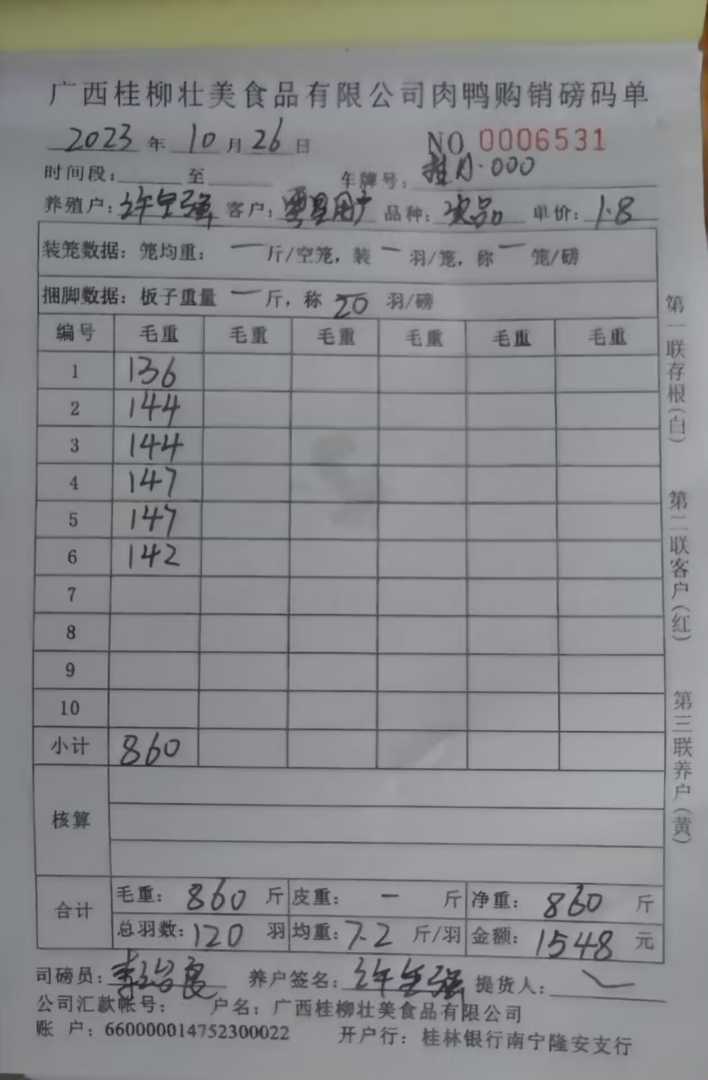 广西桂柳壮美食品有限公司肉鸭购销磅码单
2023年10月26日 NO 0006531
时间段： 至 车牌号：桂A·000
养殖户：许全强 客户： 品种：次品 单价：1.8
装笼数据：笼均重：一斤/空笼，装一羽/笼，称一笼/磅
捆脚数据：板子重量一斤，称20羽/磅
编号 毛重 毛重 毛重 毛重 毛重 毛重
1 136
2 144
3 144
4 147
5 147
6 142
7
8
9
10
小计 860
核算
合计 毛重：860斤 皮重：一斤 净重：860斤
总羽数：120羽 均重：7.2斤/羽 金额：1548元
司磅员： 养户签名：许全强 提货人：
公司汇款帐号： 户名：广西桂柳壮美食品有限公司
账户：660000014752300022 开户行：桂林银行南宁隆安支行
第一联存根（白） 第二联客户（红） 第三联养户（黄）